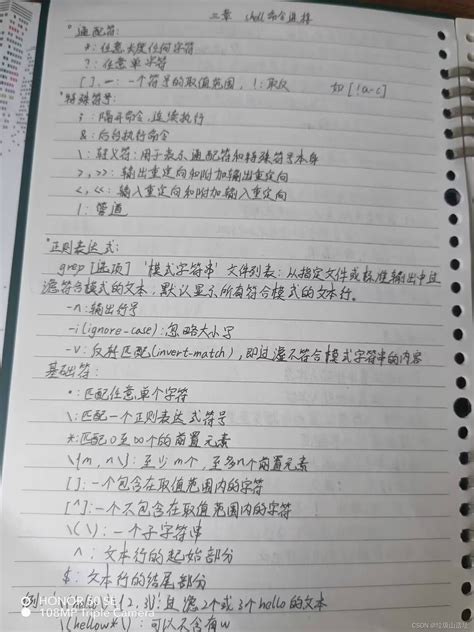 三章 shell命令进阶
*通配符:
*: 任意长度任何字符
?: 任意单字符
[ ], 一: 一个符号的取值范围, !: 取反 如 [!a-c]
*特殊符号:
; : 隔开命令,连续执行
& : 后台执行命令
\ : 转义符: 用于表示通配符和特殊符号本身
>, >> : 输出重定向和附加输出重定向
<, << : 输入重定向和附加输入重定向
| : 管道
*正则表达式:
grep [选项] '模式字符串' 文件列表: 从指定文件或标准输出中过
滤符合模式的文本, 默认显示所有符合模式的文本行。
-n: 输出行号
-i(ignore-case): 忽略大小字
-v: 反转匹配(invert-match), 即过滤不符合模式字符串的内容
基础符:
• : 匹配任意单个字符
\ : 匹配一个正则表达式符号
* : 匹配0至∞个的前置元素
\{m, n\} : 至少m个, 至多n个前置元素
[ ] : 一个包含在取值范围内的字符
[^] : 一个不包含在取值范围内的字符
\( \) : 一个子字符串
^ : 文本行的起始部分
$ : 文本行的结尾部分
: 过滤2个或3个hello的文本
\(hellow*\) : 可以不含有w
HONOR 60 SE
108MP Triple Camera